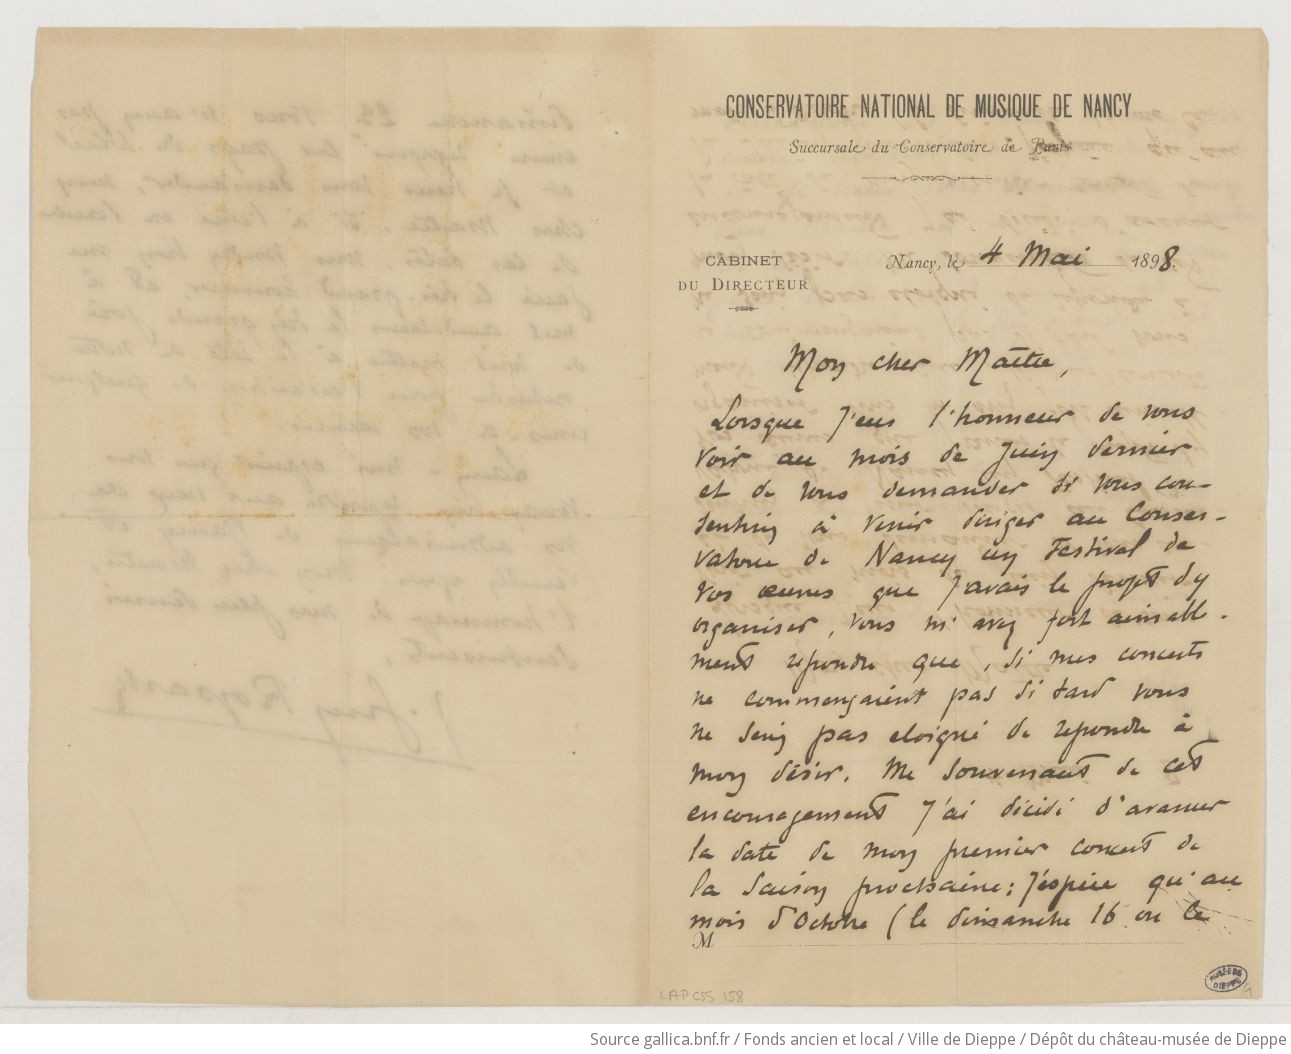 CONSERVATOIRE NATIONAL DE MUSIQUE DE NANCY
Succursale du Conservatoire de Paris
CABINET
DU DIRECTEUR
Nancy, le 4 Mai 1898.
Mon cher Maître,
Lorsque j'eus l'honneur de vous
voir au mois de Juin dernier
et de vous demander si vous con-
sentiriez à venir diriger au Conser-
vatoire de Nancy un Festival de
vos œuvres que j'avais le projet d'y
organiser, vous m'avez fort aimable-
ment répondu que, si mes concerts
ne commençaient pas si tard vous
ne seriez pas eloigné de repondre à
mon désir. Me souvenant de cet
encouragement j'ai décidé d'avancer
la date de mon premier concert de
la saison prochaine; J'espère qu'au
mois d'Octobre (le dimanche 16 ou le
M
LAPCSS 158
MUSÉE DE
DIEPPE
Source gallica.bnf.fr / Fonds ancien et local / Ville de Dieppe / Dépôt du château-musée de Dieppe